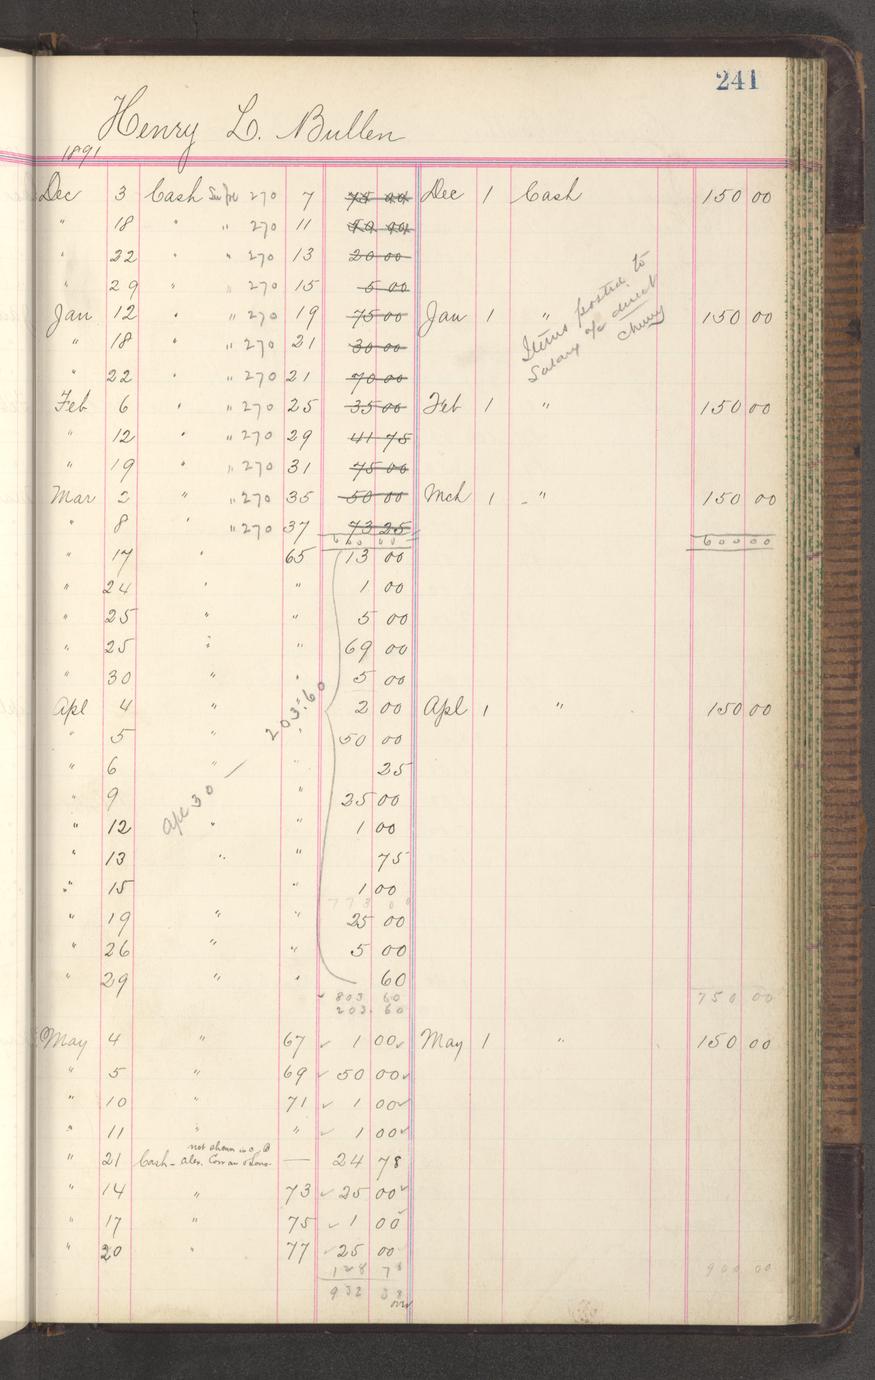 241
Henry L. Bullen
1891
Dec 3 Cash 270 7 75 00 Dec 1 Cash 150 00
" 18 " " 270 11
" 22 " " 270 13 20 00
" 29 " " 270 15 5 00
Jan 12 " " 270 19 75 00 Jan 1 " 150 00
" 18 " " 270 21 30 00
" 22 " " 270 21 70 00
Feb 6 " " 270 25 35 00 Feb 1 " 150 00
" 12 " " 270 29 41 75
" 19 " " 270 31 75 00
Mar 2 " " 270 35 50 00 Mch 1 " 150 00
" 8 " " 270 37 73 25
600 00 600 00
Items posted to
Salary a/c direct
" 17 " 65 13 00
" 24 " " 1 00
" 25 " " 5 00
" 25 " " 69 00
" 30 " " 5 00
Apl 4 " " 2 00 Apl 1 " 150 00
" 5 " " 50 00
" 6 " " 25
" 9 " " 25 00
Apl 30 — 203.60
" 12 " " 1 00
" 13 " " 75
" 15 " 1 00
773 00
" 19 " " 25 00
" 26 " " 5 00
" 29 " " 60
803 60 750 00
203.60
May 4 " 67 1 00 May 1 " 150 00
" 5 " 69 50 00
" 10 " 71 1 00
" 11 " " 1 00
not shown in C.B
" 21 Cash - Alex. & Sons — 24 78
" 14 " 73 25 00
" 17 " 75 1 00
" 20 " 77 25 00
128 78 900 00
932 38
over